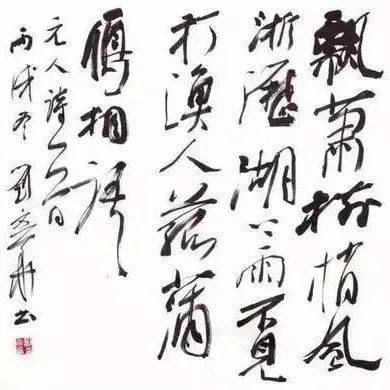 飄蕭樹梢風
淅瀝湖上雨不見
打漁人菰蒲
雁相語
元人詩一首
丙戌冬 劉 書